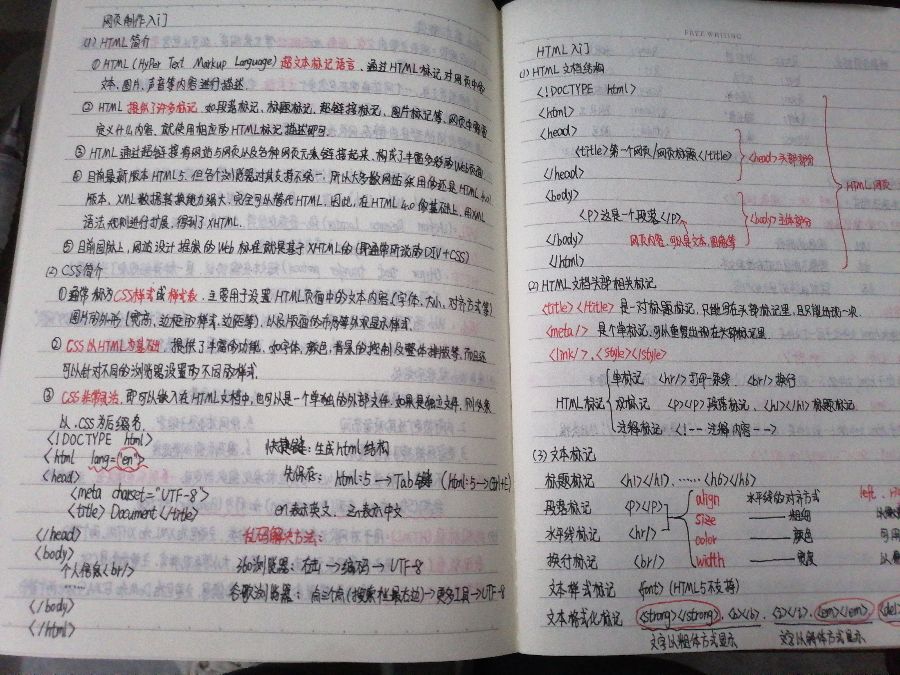 网页制作入门
(1) HTML 简介
① HTML (HyPer Text Markup Language) 超文本标记语言、通过HTML标记对网页中的
文本、图片、声音等内容进行描述.
② HTML 提供了许多标记, 如段落标记、标题标记、超链接标记、图片标记等, 网页中需要
定义什么内容, 就使用相应的HTML标记描述即可.
③ HTML 通过超链接将网站与网页以及各种网页元素链接起来、构成了丰富多彩的Web页面
④ 目前最新版本HTML5、但各个浏览器对其支持不统一, 所以大多数网站采用的还是HTML 4.0
版本、XML数据转换能力强大、完全可以替代HTML、因此, 在HTML 4.0的基础上, 用XML
语法规则进行扩展, 得到了XHTML.
⑤ 目前国际上, 网站设计提倡的Web标准就是基于XHTML的 (即通常所说的DIV+CSS)
(2) CSS 简介
① 通常称为CSS样式或样式表、主要用于设置HTML页面中的文本内容(字体、大小、对齐方式等)
图片的外形(宽高、边框的样式、边距等)、以及版面的布局等外观显示样式.
② CSS以HTML为基础, 提供了丰富的功能、如字体、颜色, 背景的控制及整体排版等、而且还
可以针对不同的浏览器设置的不同的样式.
③ CSS非常灵活、即可以嵌入在HTML文档中, 也可以是一个单独的外部文件, 如果是独立文件、则必须
以 .CSS为后缀名.
<!DOCTYPE html>
快捷键: 生成html结构
<html lang="en">
先保存: html:5 → Tab键 (html:5→Ctrl+E)
<head>
<meta chaset="UTF-8">
en表示英文、zh表示中文
<title> Document </title>
</head>
乱码解决方法:
<body>
360浏览器: 右击→编码→UTF-8
个人信息<br/>
……
谷歌浏览器: 点三个点(搜索栏最右边)→更多工具→UTF-8
</body>
</html>
FREE WRITING
HTML 入门
(1) HTML 文档结构
<!DOCTYPE html>
<html>
<head>
<title>第一个网页/网页标题</title> <head>头部部分
</head>
HTML 网页
<body>
<P>这是一个段落</P> <body>主体部分
</body> 网页内容, 可以是文本、图像等
</html>
(2) HTML 文档头部相关标记
<title></title> 是一对标题标记, 只能写在头部标记里, 且只能出现一次.
<meta/> 是个单标记, 可以重复出现在头部标记里.
<link/>、<style></style>
单标记 <hr/>打印一条线 <br/>换行
HTML标记 双标记 <P></P>段落标记、<h1></h1>标题标记
注释标记 <!-- 注释内容 -->
(3) 文本标记
标题标记 <h1></h1>、……<h6></h6>
段落标记 <P></P> align 水平线的对齐方式 left、
size ——— 粗细
水平线标记 <hr/> color ——— 颜色 可用
换行标记 <br/> width ——— 宽度
文本样式标记 font (HTML5不支持)
文本格式化标记 <strong></strong>、<b></b>、<i></i>、<em></em>、<del>
文字以粗体方式显示 文字以斜体方式显示